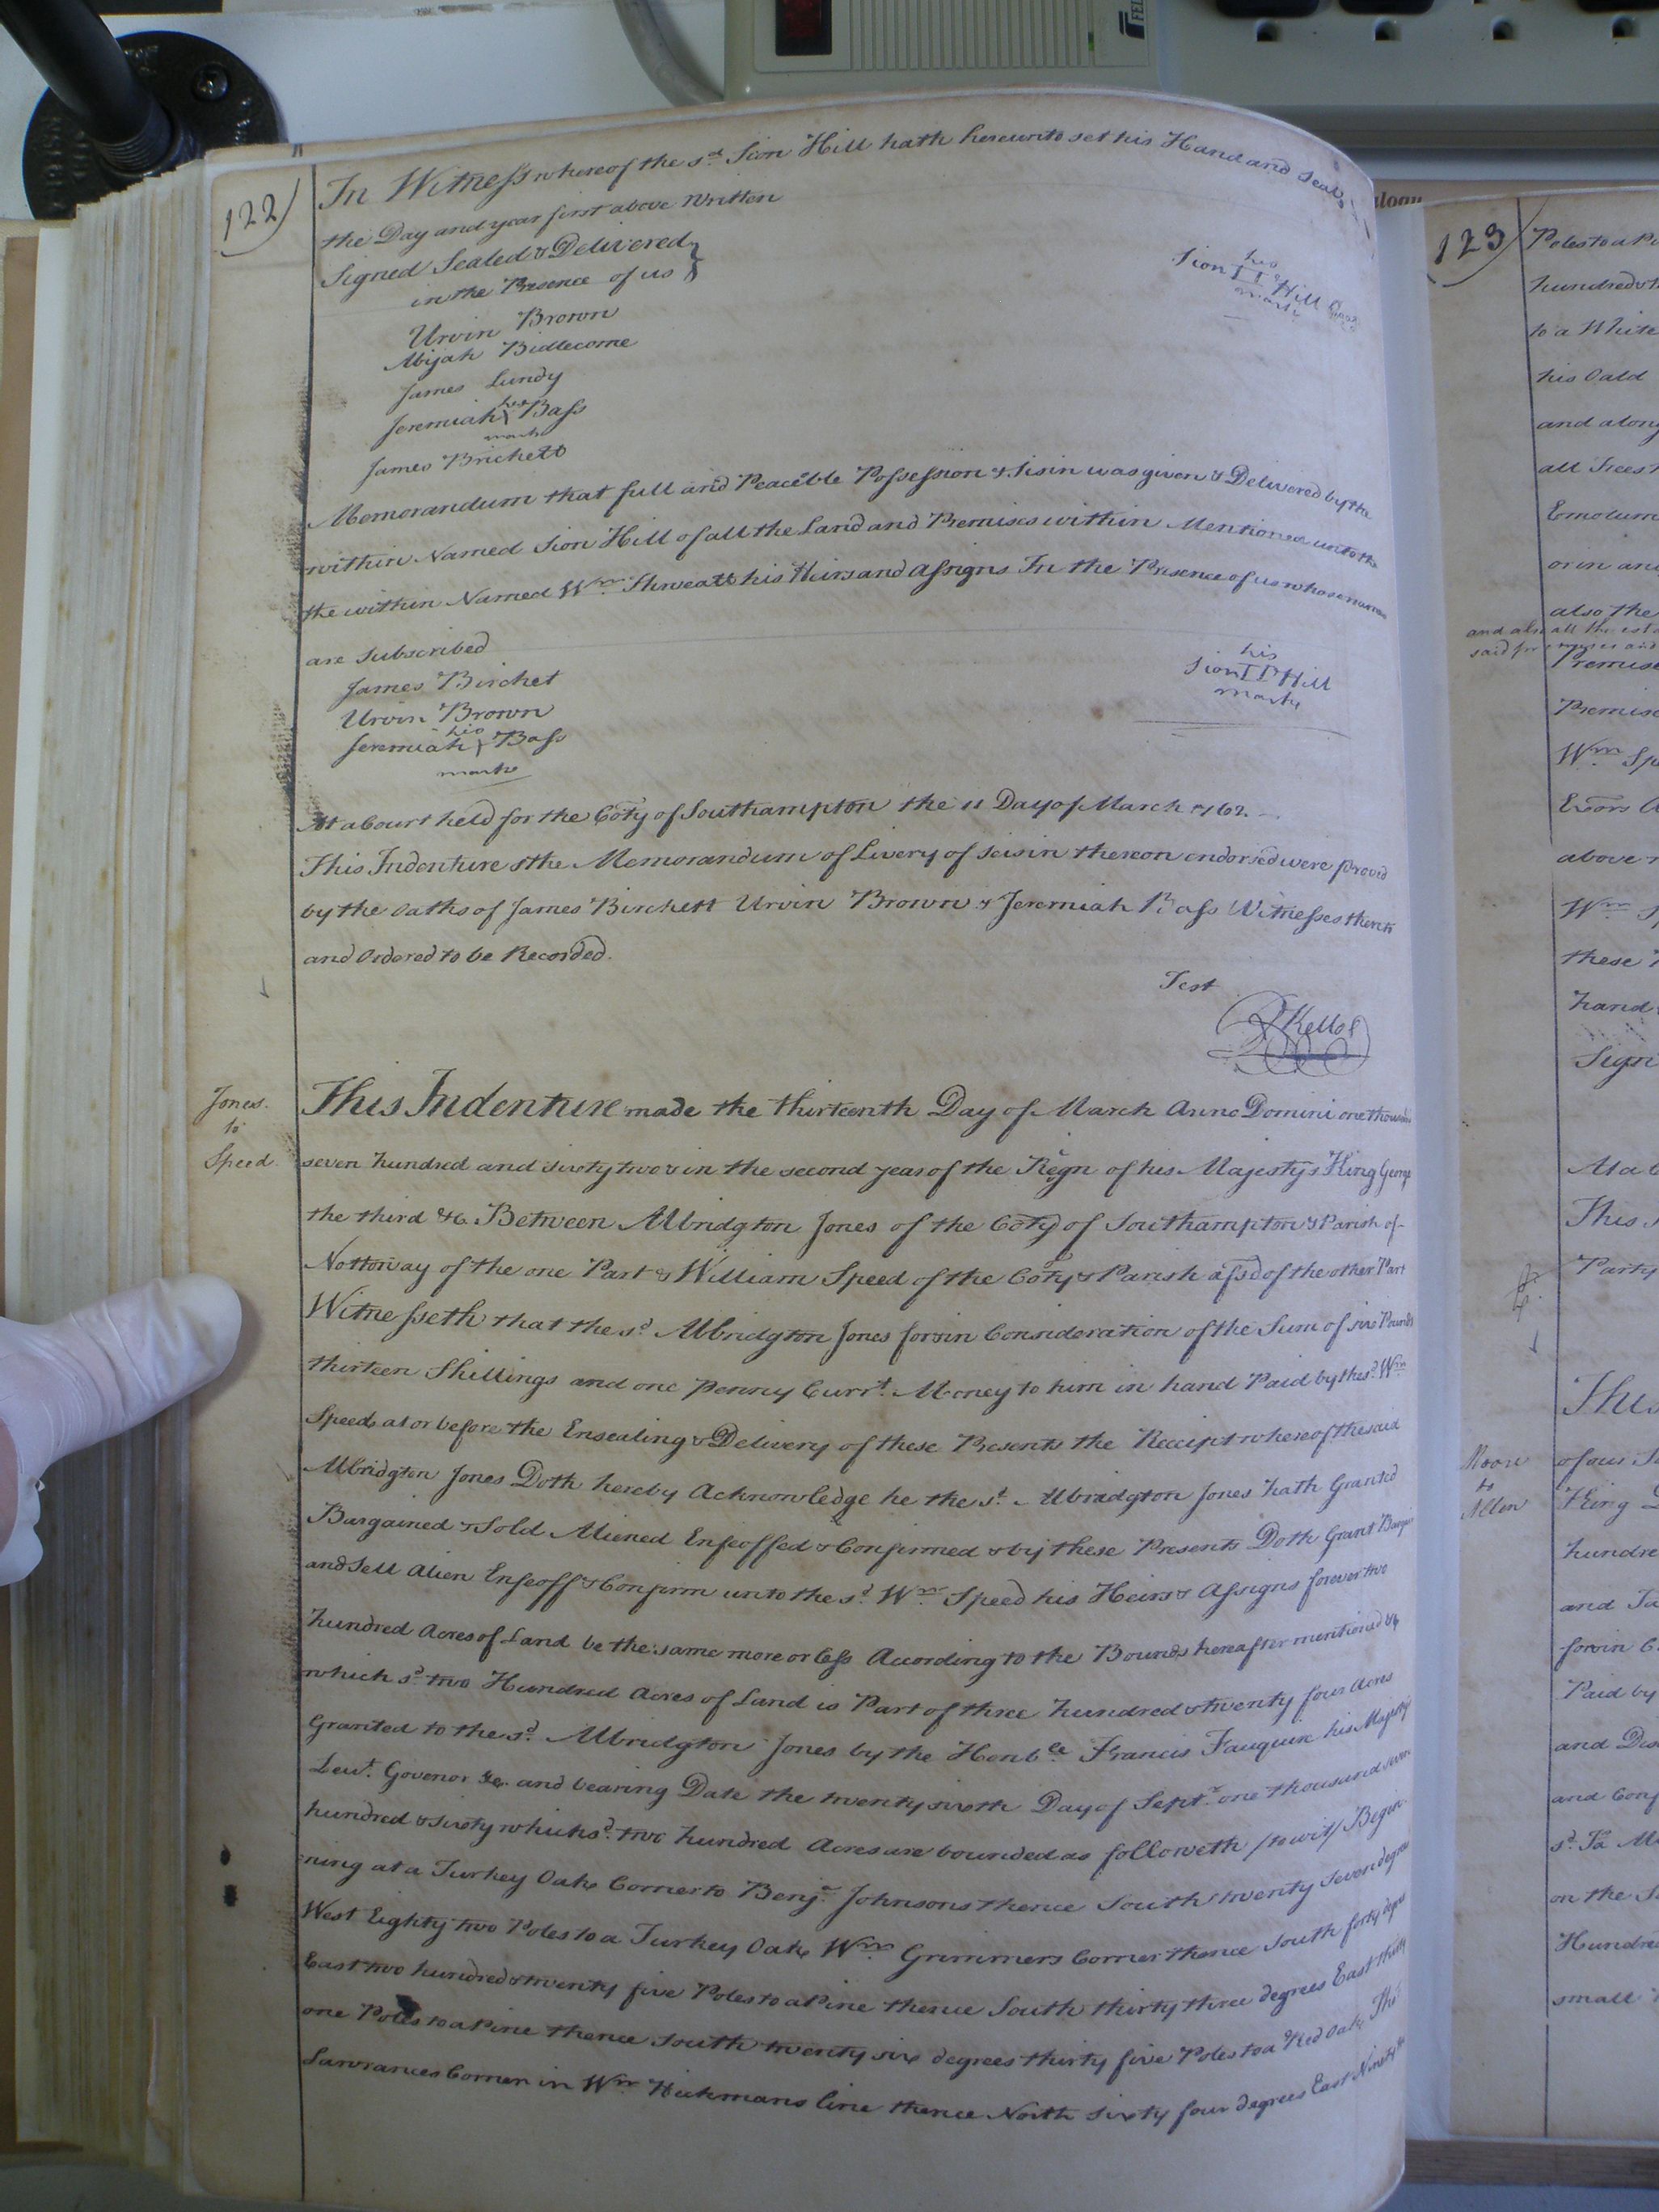 122
In Witness whereof the sd. Sion Hill hath hereunto set his Hand and Seal
the Day and year first above Written
Signed Sealed & Delivered
in the Presence of us
his
Sion II Hill
mark
Urvin Brown
Abijah Bidlecome
James Lundy
his
Jeremiah Bass
mark
James Brichett
Memorandum that full and Peaceble Possession & Sisin was given & Delivered by the
within Named Sion Hill of all the Land and Premises within Mentioned unto the
the within Named Wm. his Heirs and Assigns In the Presence of us whose names
are Subscribed
his
Sion II Hill
mark
James Birchet
Urvin Brown
his
Jeremiah Bass
mark
At a Court held for the Coty of Southampton the 11 Day of March 1762
This Indenture & the Memorandum of Livery of Seisin thereon endorsed were proved
by the Oaths of James Birchett Urvin Brown & Jeremiah Bass Witnesses thereto
and Ordered to be Recorded.
Test
RKello
Jones.
to
Speed.
This Indenture made the thirteenth Day of March Anno Domini one thousand
seven hundred and sixty two & in the second year of the Regn of his Majestys King George
the third &c. Between Albridgton Jones of the Coty of Southampton & Parish of
Nottoway of the one Part & William Speed of the Coty & Parish afsd of the other Part
Witnesseth that the sd. Albridgton Jones for & in Consideration of the Sum of six Pounds
thirteen Shillings and one Penny Currt. Money to him in hand Paid by the sd. Wm
Speed at or before the Ensealing & Delivery of these Presents the Receipt whereof the said
Albridgton Jones Doth hereby Acknowledge he the sd. Albridgton Jones hath Granted
Bargained & Sold Aliened Enfeoffed & Confirmed & by these Presents Doth Grant Bargain
and Sell Alien Enfeoff & Confirm unto the sd. Wm. Speed his Heirs & Assigns forever two
hundred Acres of Land be the same more or less According to the Bounds hereafter mentioned
which sd. two Hundred Acres of Land is Part of three hundred & twenty four Acres
Granted to the sd. Albridgton Jones by the Honble Francis Fauquier his Majestys
Leut. Govenor &c. and bearing Date the twenty sixth Day of Septr. one thousand seven
hundred & sixty which sd. two hundred Acres are bounded as followeth /to wit/ Begin
ning at a Turkey Oak Corner to Benja. Johnsons thence South twenty seven degrees
West Eighty two Poles to a Turkey Oak Wm Grimmers Corner thence South forty degrees
East two hundred & twenty five Poles to a Pine thence South thirty three degrees East thirty
one Poles to a Pine thence South twenty six degrees thirty five Poles to a Red Oak Thos.
Lawrances Corner in Wm. Hickmans line thence North sixty four degrees East Ninety
123
Poles to a
hundred
to a White
his Oald
and along
all Trees
Emolum
or in any
also the
and also all the
said
Premises
Premises
Wm Sp
Exors
above
Wm.
these
hand
Sign
At a C
This
Party
Moore
to
Allen
This
of our
King
hundre
and
for & in C
Paid by
and De
and Conf
sd.
on the S
Hundred
small